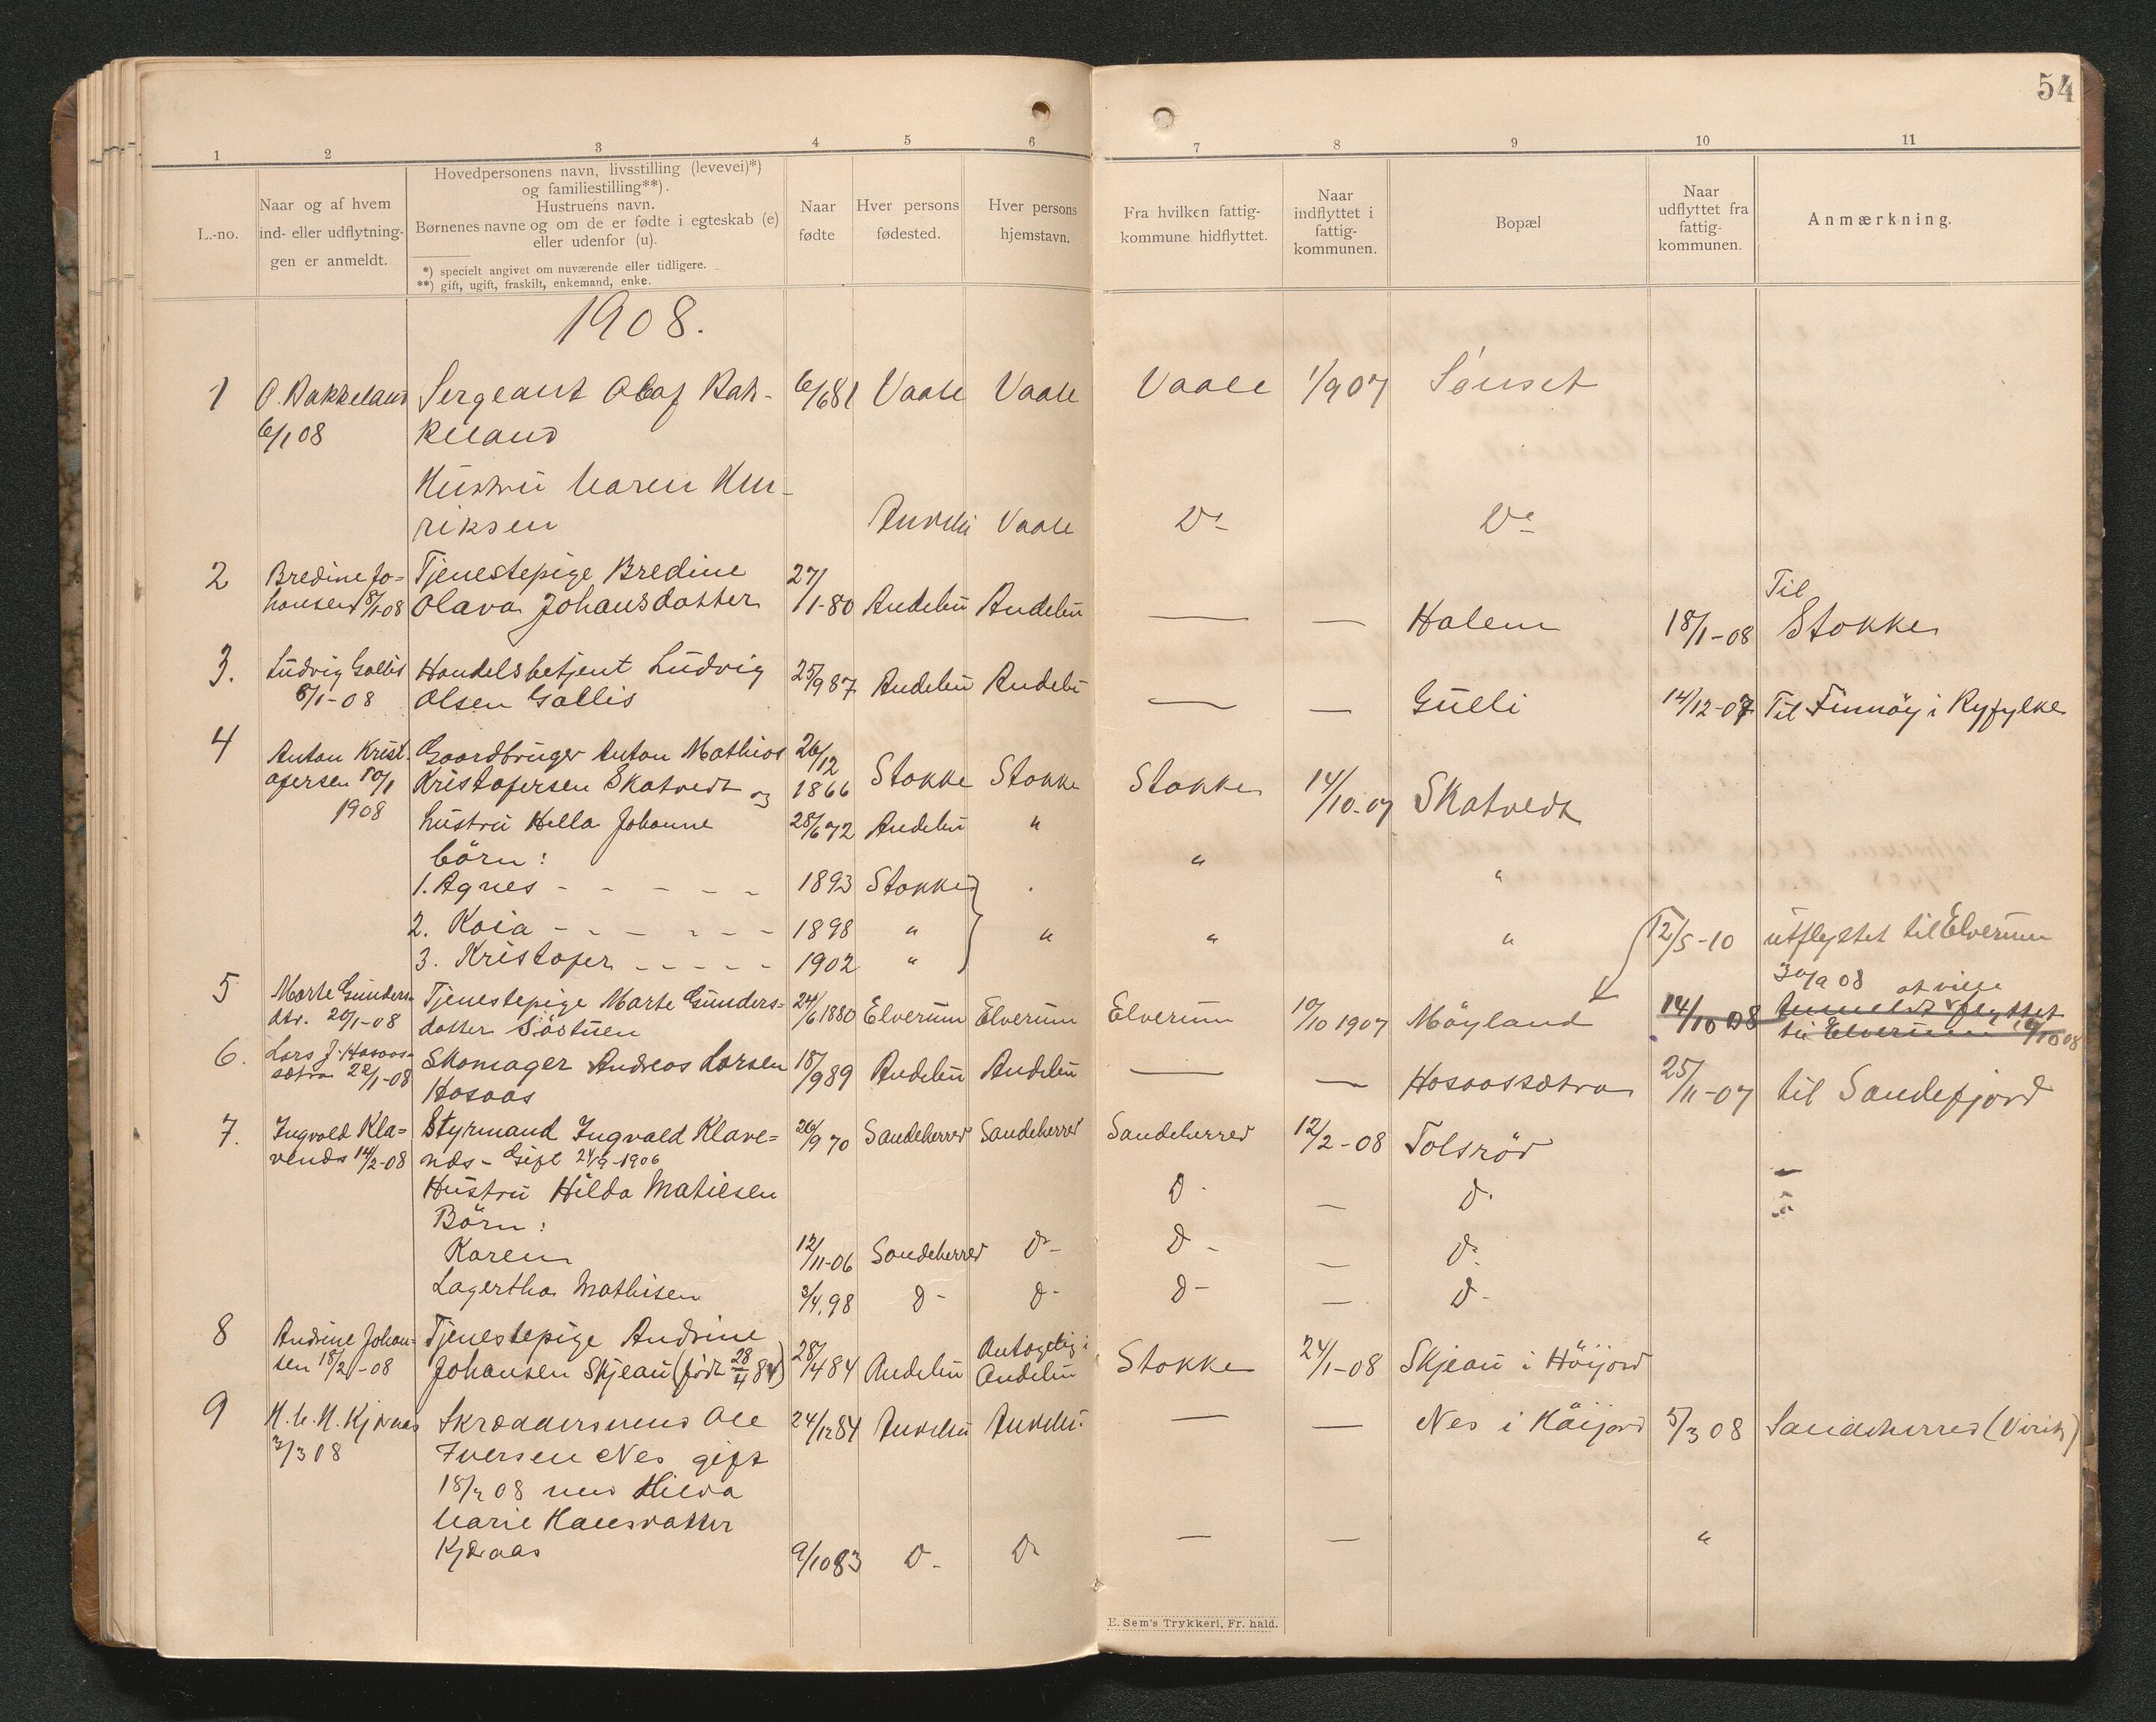 54
1 2 3 4 5 6 7 8 9 10 11
L.-no.
Naar og af hvem
ind- eller udflytnin-
gen er anmeldt.
Hovedpersonens navn, livsstilling (levevei)*)
og familiestilling**).
Hustruens navn.
Børnenes navne og om de er fødte i egteskab (e)
eller udenfor (u).
*) specielt angivet om nuværende eller tidligere.
**) gift, ugift, fraskilt, enkemand, enke.
Naar
fødte
Hver persons
fødested.
Hver persons
hjemstavn.
Fra hvilken fattig-
kommune hidflyttet.
Naar
indflyttet i
fattig-
kommunen.
Bopæl
Naar
udflyttet fra
fattig-
kommunen.
Anmærkning.
1908.
1 O. Bakkeland Sergeant Olaf Bak- 6/6 81 Vaale Vaale Vaale 1/9 07 Sönset
6/1 08 keland
Hustru Maren Hen-
riksen Andebu Vaale Do Do
2 Bredine Jo= Tjenestepige Bredine 27/
hansen 8/1-08 Olava Johansdatter 1-80 Andebu Andebu — — Halem 18/1-08 Til Stokke
3. Ludvig Gallis Handelsbetjent Ludvig 25/9 87 Andebu Andebu — — Gulli 14/12-07 Til Finnöy i Ryfylke
8/1-08 Olsen Gallis
4 Anton Krist- Gaardbruger Anton Mathias 26/12
ofersen 10/1 Kristofersen Skatvedt og 1866 Stokke Stokke Stokke 14/10-07 Skatvedt
1908 hustru Hella Johanne 28/6 72 Andebu "
börn: "
1. Agnes - - - - - 1893 Stokke "
2. Kaia - - - - - - 1898 " " " " 12/5-10 utflyttet til Elverum
3. Kristofer - - - - - 1902 "
30/9 08 at ville
5 Marte Gunders- Tjenestepige Marte Gunders= 24/6 1880 Elverum Elverum Elverum 10/10 1907 Möyland 14/10 08 Anmeldt flyttet
dtr. 20/1-08 datter Söstuen til Elverum 14/10 08
6. Lars J. Hasaas- Skomager Andreas Larsen 18/9 89 Andebu Andebu — — Hasaassætra 25/11-07 til Sandefjord
sætra 22/1-08 Hasaas
7. Ingvald Kla= Styrmand Ingvald Klave= 26/9 70 Sandeherred Sandeherred Sandeherred 12/2-08 Tolsröd
vends 14/2-08 nds - Gift 24/9-1906
Hustru Hilda Matisen D- — D-
Börn:
Karen 12/11-06 Sandeherred D- D- — D-
Lagertha Mathisen 3/4.98 D- D- D- — D-
8 Andrine Johan- Tjenestepige Andrine 28/ Antagelig i
sen 18/2-08 Johansen Skjeau (född 28/4 84) 4 84 Andebu Andebu Stokke 24/1-08 Skjeau i Höijord
9 H. M. H. Kjæraas Skræddersvend Ole 24/12 84 Andebu Andebu — — Nes i Höijord 5/3 08 Sandeherred (Virik)
3/3 08 Iversen Nes gift
18/2 08 med Hilda
Marie Hansdatter
Kjæraas 9/10 83 D- D- — — "
E. Sem's Trykkeri, Fr. hald.